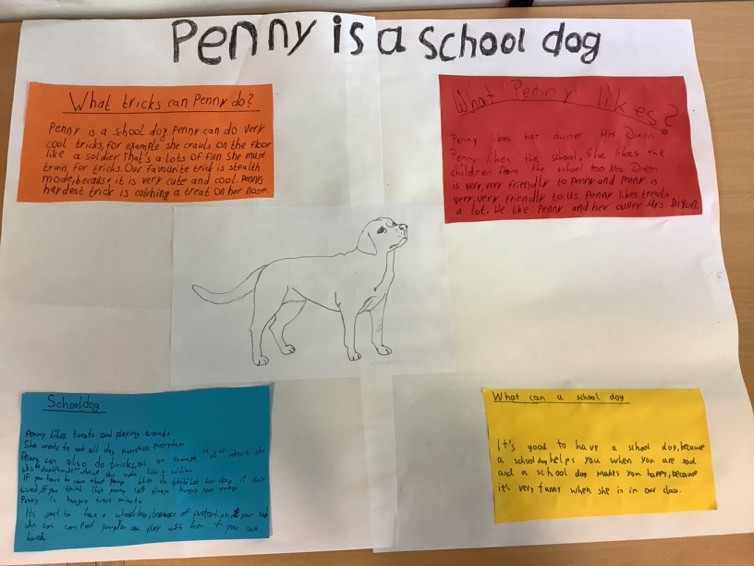 Penny is a school dog
What tricks can Penny do?
Penny is a school dog. Penny can do very
cool tricks, for example she crawls on the floor
like a soldier. That's a lots of fun. She must
train for tricks. Our favourite trick is stealth
mode, because it is very cute and cool. Pennys
hardest trick is catching a treat on her nose.
What Penny likes?
Penny likes her owner Mrs Dixon.
Penny likes the school. She likes the
children from the school too. Mrs Dixon
is very, very friendly to Penny and Penny is
very, very friendly to us. Penny likes treats
a lot. We like Penny and her owner Mrs Dixon.
Schooldog
Penny likes treats and playing around.
She wants to eat all day nonstop everyday.
Penny can also do tricks, an example is
like a soldier.
If you have to care about Penny
bored, if you think that penny
Penny is hungry every minute.
It's good to have a schooldog, because of protection,
she can comfort you, can play with him if you are
bored.
What can a school dog
It's good to have a school dog, because
a school dog helps you when you are sad
and a school dog makes you happy, because
it's very funny when she is in our class.